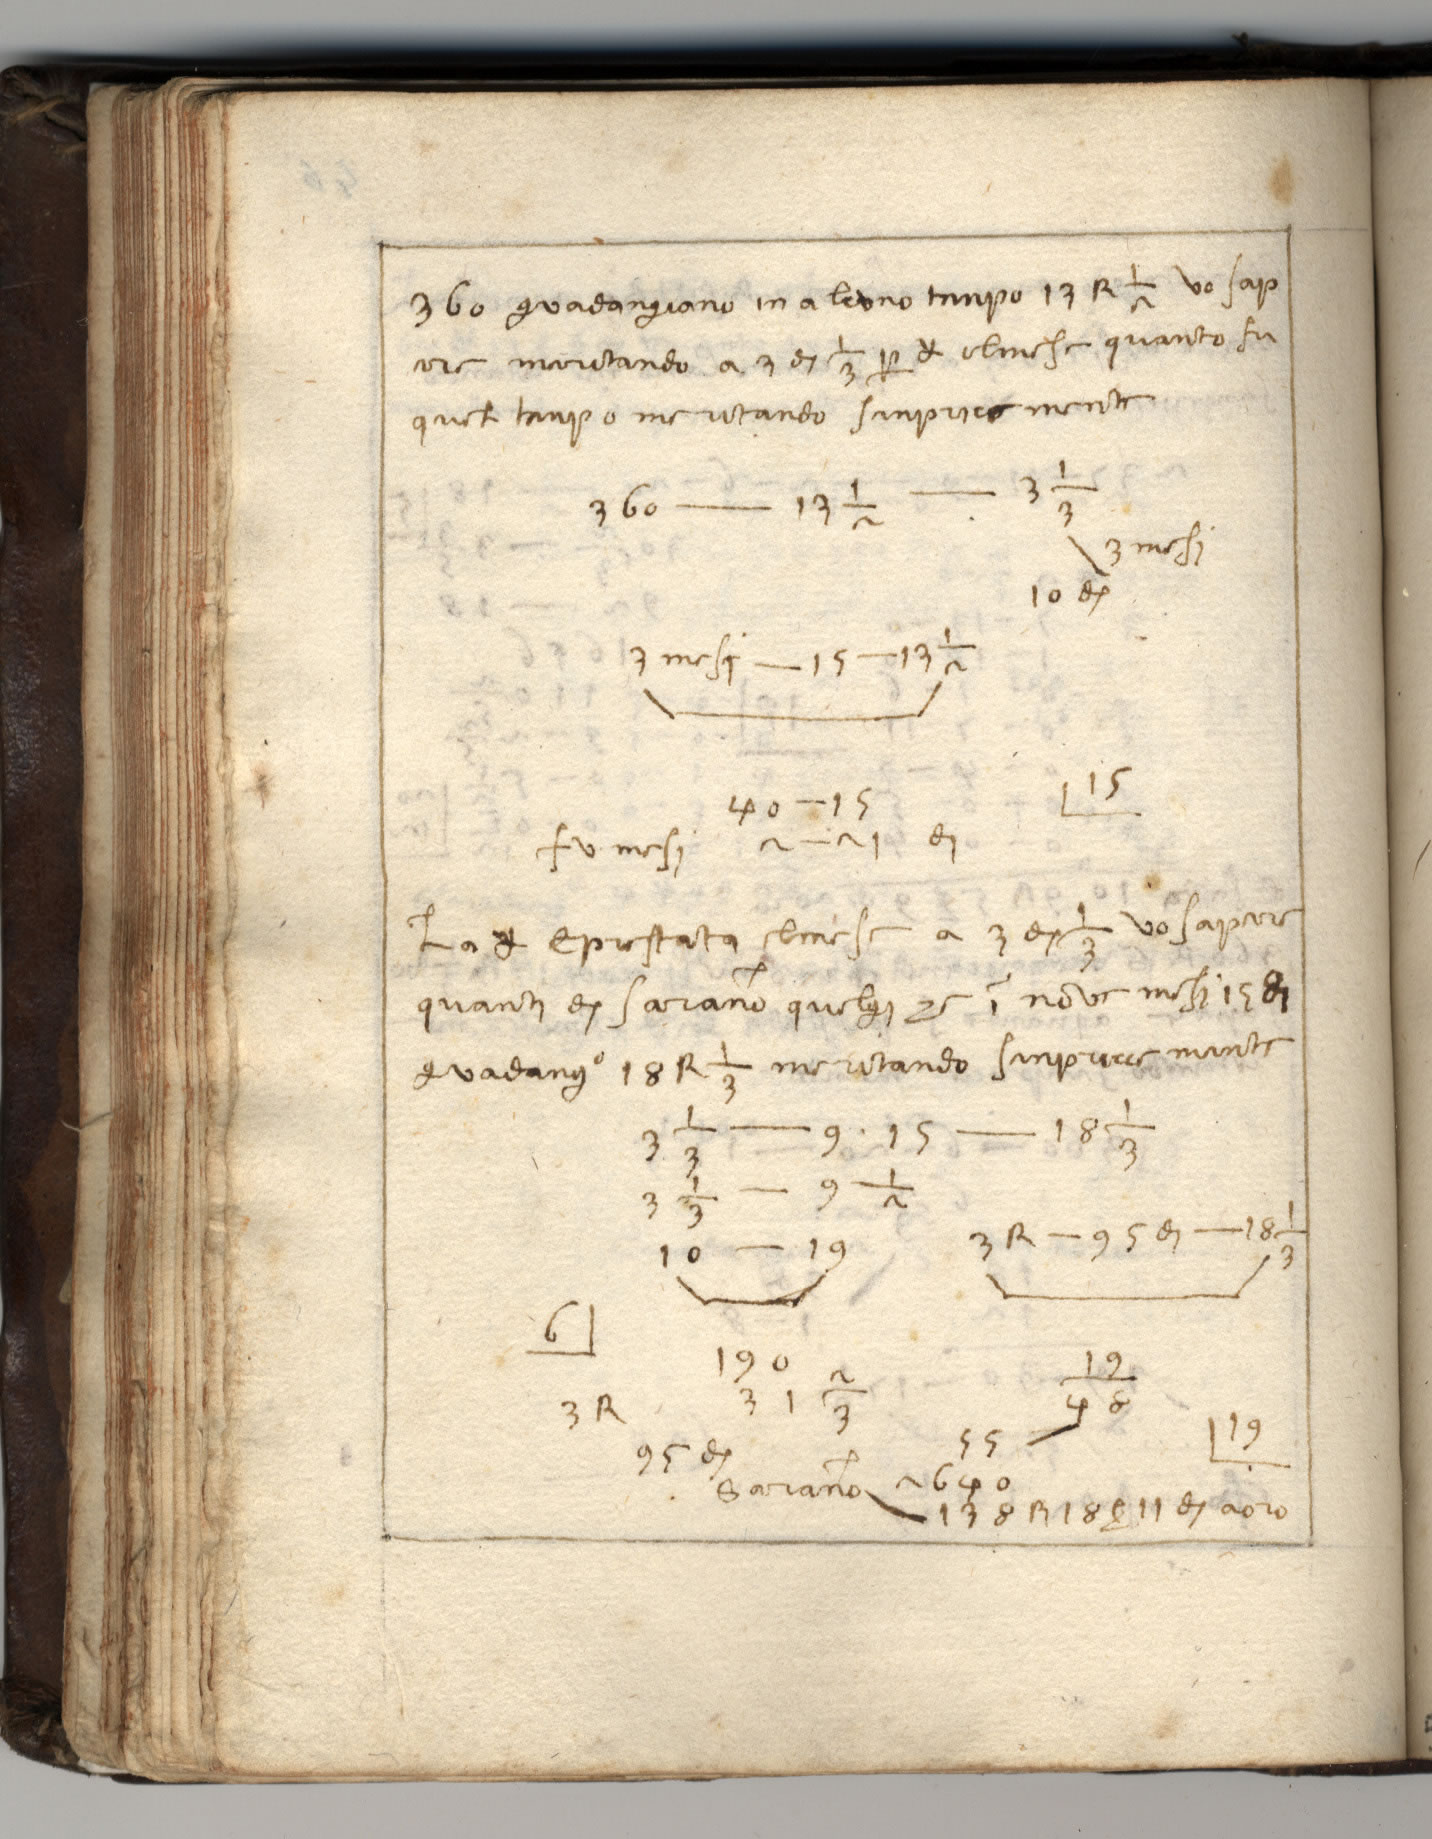 360 guadangiano in alcuno tenpo 13 R 1/2 vo sap
ere meritando a 3 d 1/3 p el mese quanto fu
quel tenpo meritando sinpricemente
360 — 13 1/2 — 3 1/3
3 mesi
10 d
3 mesi — 15 — 13 1/2
40 — 15
15
fu mesi 2 — 21 di
La è prestata el mese a 3 d 1/3 vo sapere
quanti d sarano quelgi in nove mesi 15 di
guadango 18 R 1/3 meritando sinpricemente
3 1/3 — 9 · 15 — 18 1/3
3 1/3 — 9 1/2
10 — 19
3 R — 95 di — 18 1/3
6
190
31 2/3
3 R
95 d
19
48
55
19
Sarano 2640
138 R 18 11 d aoro